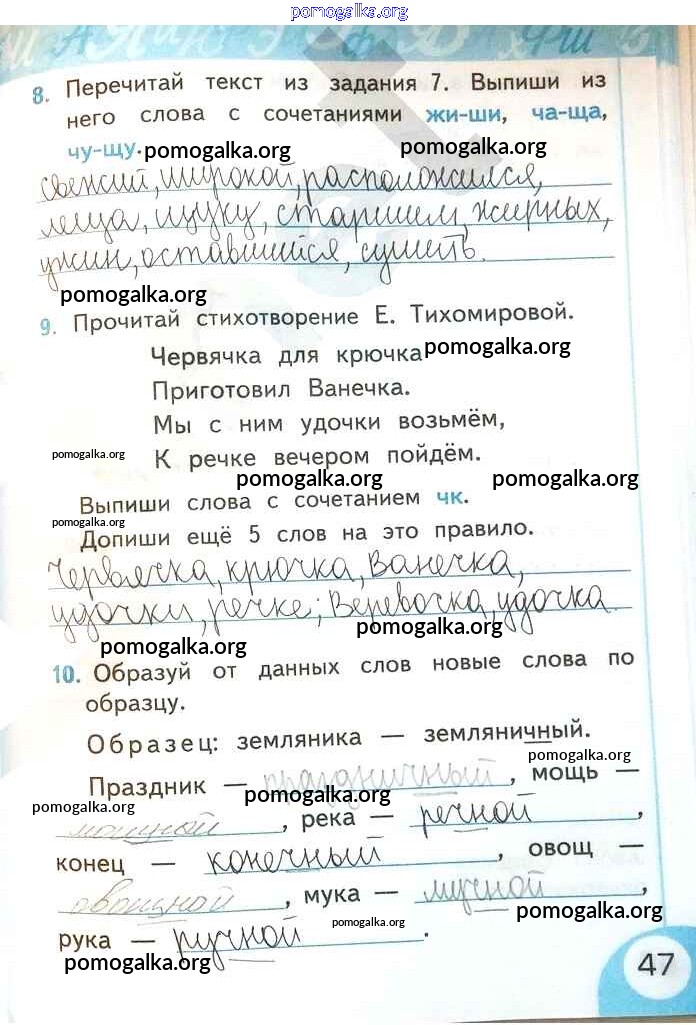 pomogalka.org
8. Перечитай текст из задания 7. Выпиши из
него слова с сочетаниями жи-ши, ча-ща,
чу-щу. pomogalka.org pomogalka.org
свежий, широкой, расположился,
леща, щуку, старшим, жирных,
ужин, оставшийся, сушить.
pomogalka.org
9. Прочитай стихотворение Е. Тихомировой.
Червячка для крючка pomogalka.org
Приготовил Ванечка.
Мы с ним удочки возьмём,
pomogalka.org К речке вечером пойдём.
pomogalka.org pomogalka.org
Выпиши слова с сочетанием чк.
pomogalka.org
Допиши ещё 5 слов на это правило.
Червячка, крючка, Ванечка,
удочки, речке; Веревочка, удочка.
pomogalka.org pomogalka.org
10. Образуй от данных слов новые слова по
образцу.
Образец: земляника — земляничный.
pomogalka.org
Праздник — праздничный, мощь —
pomogalka.org pomogalka.org
мощной, река — речной,
конец — конечный, овощ —
овощной, мука — мучной,
pomogalka.org pomogalka.org
рука — ручной.
pomogalka.org
47